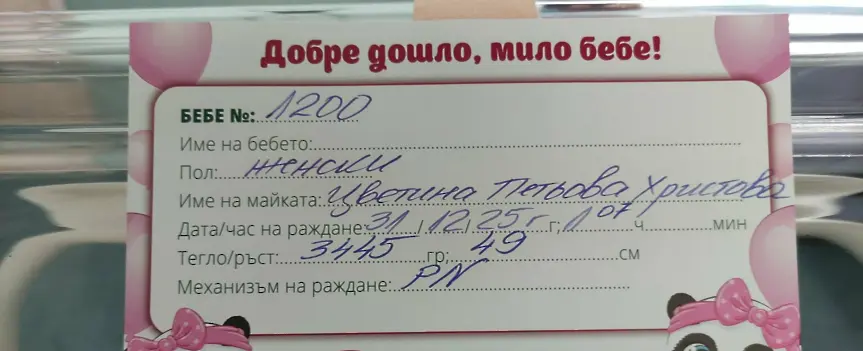 Добре дошло, мило бебе!
БЕБЕ №: 1200
Име на бебето:
Пол: женски
Име на майката: Цветина Петьова Христова
Дата/час на раждане: 31 / 12 / 25 г г; 1 07 ч мин
Тегло/ръст: 3445 гр; 49 см
Механизъм на раждане: PN